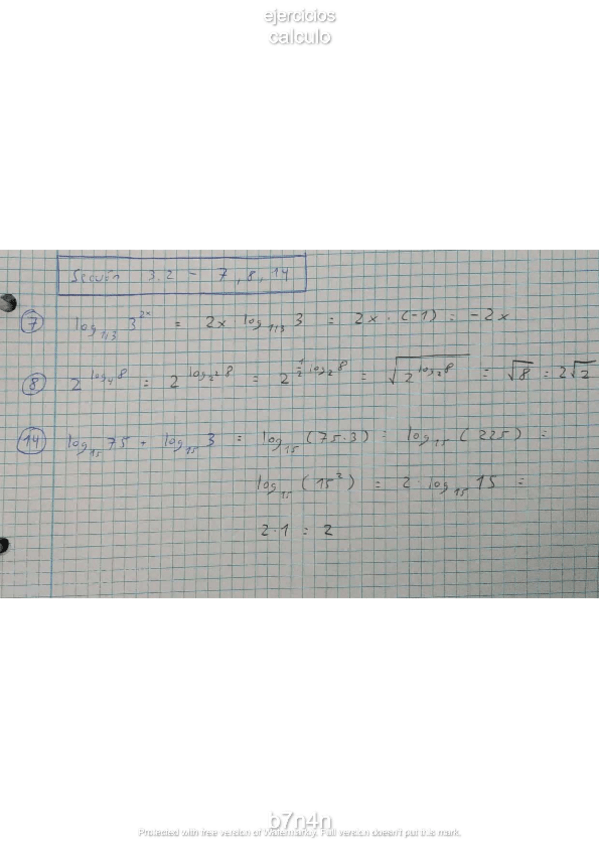 ejercicios
calculo
Sección 3.2 - 7, 8, 14
7 log₁/₃ 3²ˣ = 2x · log₁/₃ 3 = 2x · (-1) = -2x
8 2^(log₄ 8) = 2^(log₂² 8) = 2^(½ log₂ 8) = √(2^(log₂ 8)) = √8 = 2√2
14 log₁₅ 75 + log₁₅ 3 = log₁₅ (75·3) = log₁₅ (225) =
log₁₅ (15²) = 2 · log₁₅ 15 =
2·1 = 2
b7n4n
Protected with free version of Watermarkly. Full version doesn't put this mark.